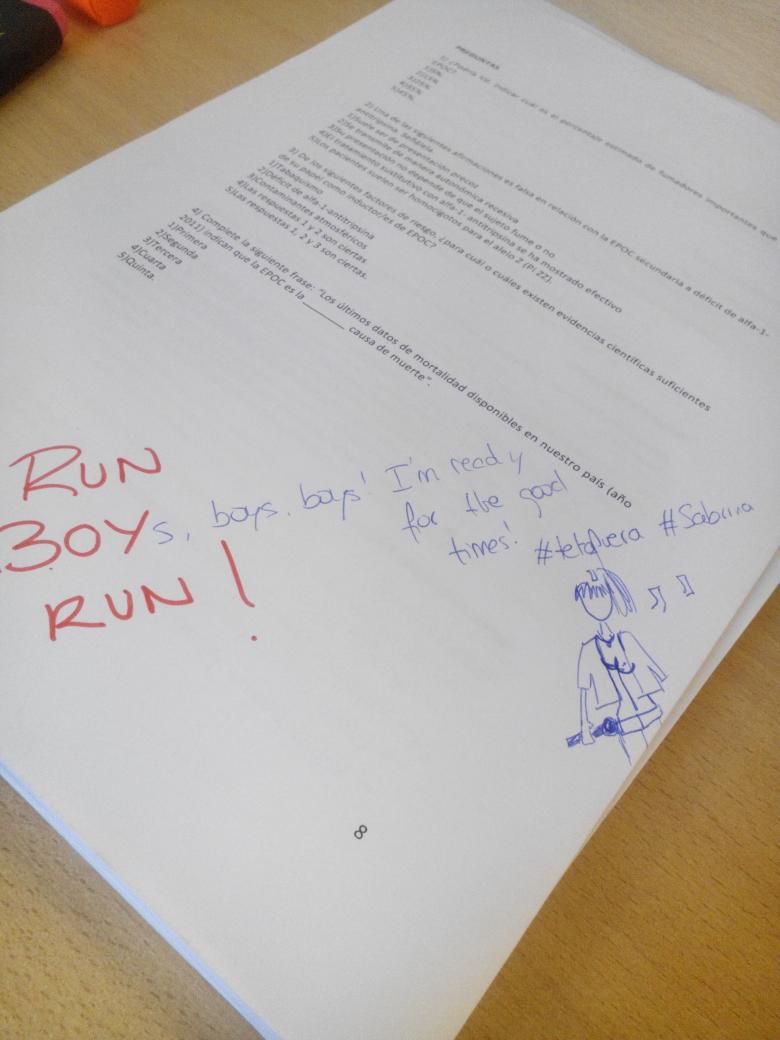 PREGUNTAS
1) ¿Podría Vd. indicar cuál es el porcentaje estimado de fumadores importantes que
EPOC?
1)5%.
2)15%.
3)25%.
4)35%.
5)45%.
2) Una de las siguientes afirmaciones es falsa en relación con la EPOC secundaria a déficit de alfa-1-
antitripsina. Señálela
1)Suele ser de presentación precoz
2)Se transmite de manera autonómica recesiva
3)Su presentación no depende de que el sujeto fume o no
4)El tratamiento sustitutivo con alfa-1- antitripsina se ha mostrado efectivo
5)Los pacientes suelen ser homocigotos para el alelo Z (Pi ZZ).
3) De los siguientes factores de riesgo, ¿para cuál o cuáles existen evidencias científicas suficientes
de su papel como inductor/es de EPOC?
1)Tabaquismo
2)Déficit de alfa-1-antitripsina
3)Contaminantes atmosféricos
4)Las respuestas 1 y 2 son ciertas
5)Las respuestas 1, 2 y 3 son ciertas.
4) Complete la siguiente frase: "Los últimos datos de mortalidad disponibles en nuestro país (año
2011) indican que la EPOC es la ________ causa de muerte".
1)Primera
2)Segunda
3)Tercera
4)Cuarta
5)Quinta.
RUN
BOYs, boys, boys! I'm ready
for the good
times! #tetafuera #Sabrina
RUN!
8